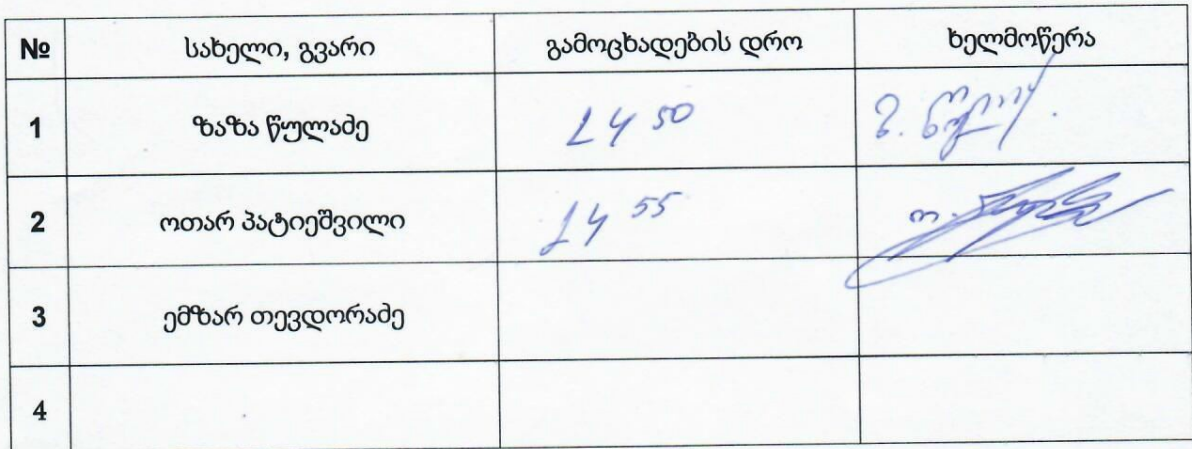 № სახელი, გვარი გამოცხადების დრო ხელმოწერა
1 ზაზა წულაძე 14 50
2 ოთარ პატიეშვილი 14 55
3 ემზარ თევდორაძე
4